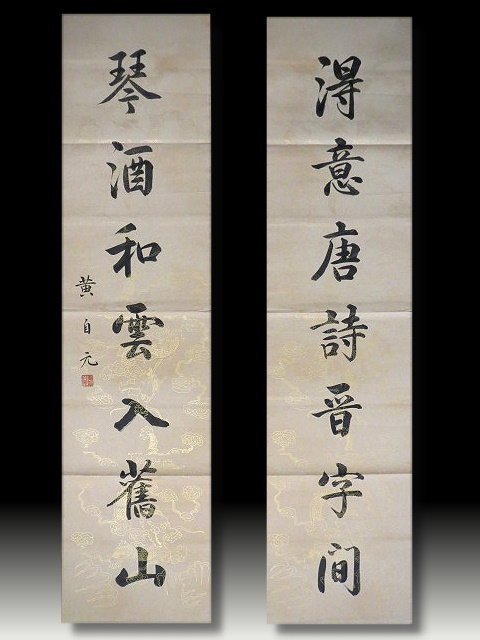 得意唐詩晋字間
琴酒和雲入舊山
黄自元